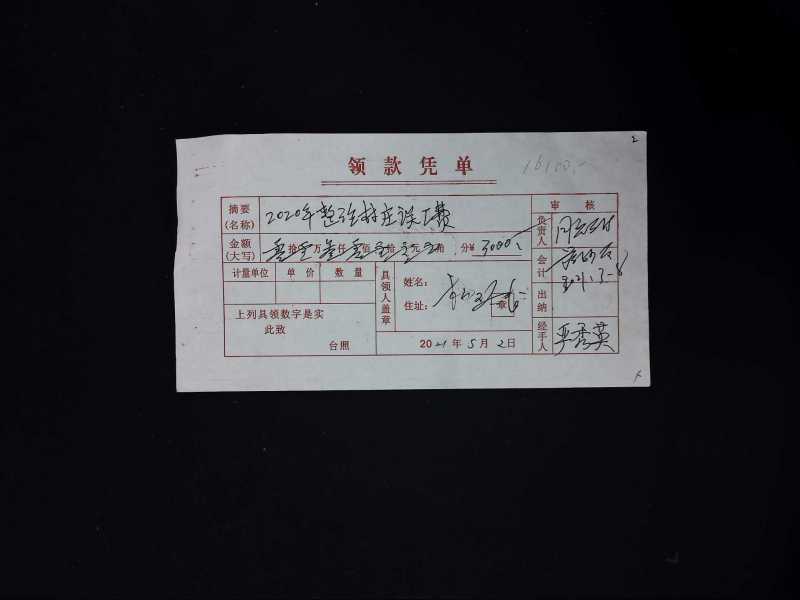 领款凭单
16100.-
摘要
(名称)
2020年整治村庄误工费
审核
负责人
金额
(大写)
零拾零万叁仟零佰零拾零元零角 分¥ 3000.
计量单位 单价 数量
具领人盖章
姓名:
住址:
章
会计
2021.3-8
上列具领数字是实
此致
台照
出纳
2021年5月2日
经手人
严秀英